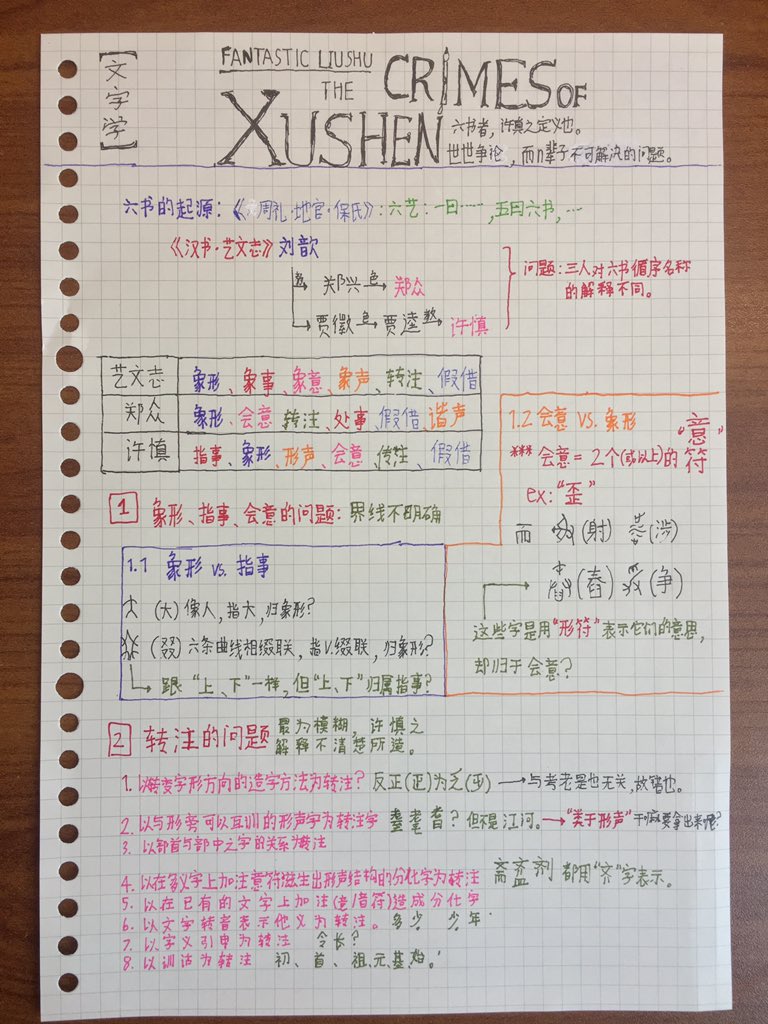 【文字学】
FANTASTIC LIUSHU
THE CRIMES OF
XUSHEN
六书者，许慎之定义也。
世世争论，而n辈子不可解决的问题。
六书的起源：《周礼·地官·保氏》：六艺：一曰……，五曰六书，…
《汉书·艺文志》刘歆
郑兴 → 郑众
贾徽 → 贾逵 → 许慎
问题：三人对六书循字名称
的解释不同。
艺文志 象形、象事、象意、象声、转注、假借
郑众 象形、会意、转注、处事、假借、谐声
许慎 指事、象形、形声、会意、传注、假借
1 象形、指事、会意的问题：界线不明确
1.1 象形 vs. 指事
(大) 像人，指大，归象形？
(叕) 六条曲线相缀联，指V.缀联，归象形？
跟“上、下”一样，但“上、下”归属指事？
1.2 会意 VS. 象形
*** 会意 = 2个(或以上)的“意”符
ex:“歪”
而 (射) (涉)
(舂) (争)
这些字是用“形符”表示它们的意思，
却归于会意？
2 转注的问题
最为模糊，许慎之
解释不清楚所造。
1. 以转变字形方向的造字方法为转注？ 反正(正)为乏 → 与考老是也无关，故错也。
2. 以与形旁可以互训的形声字为转注字 耋耄耆？但不是江河。→“类于形声”干嘛要拿出来呢？
3. 以部首与部中之字的关系为转注
4. 以在多义字上加注意符滋生出形声结构的分化字为转注 斋齍剂 都用“齐”字表示。
5. 以在已有的文字上加注(意/音符)造成分化字
6. 以文字转音表示他义为转注。多少 少年
7. 以字义引申为转注 令长？
8. 以训诂为转注 初、首、祖、元、基、始。